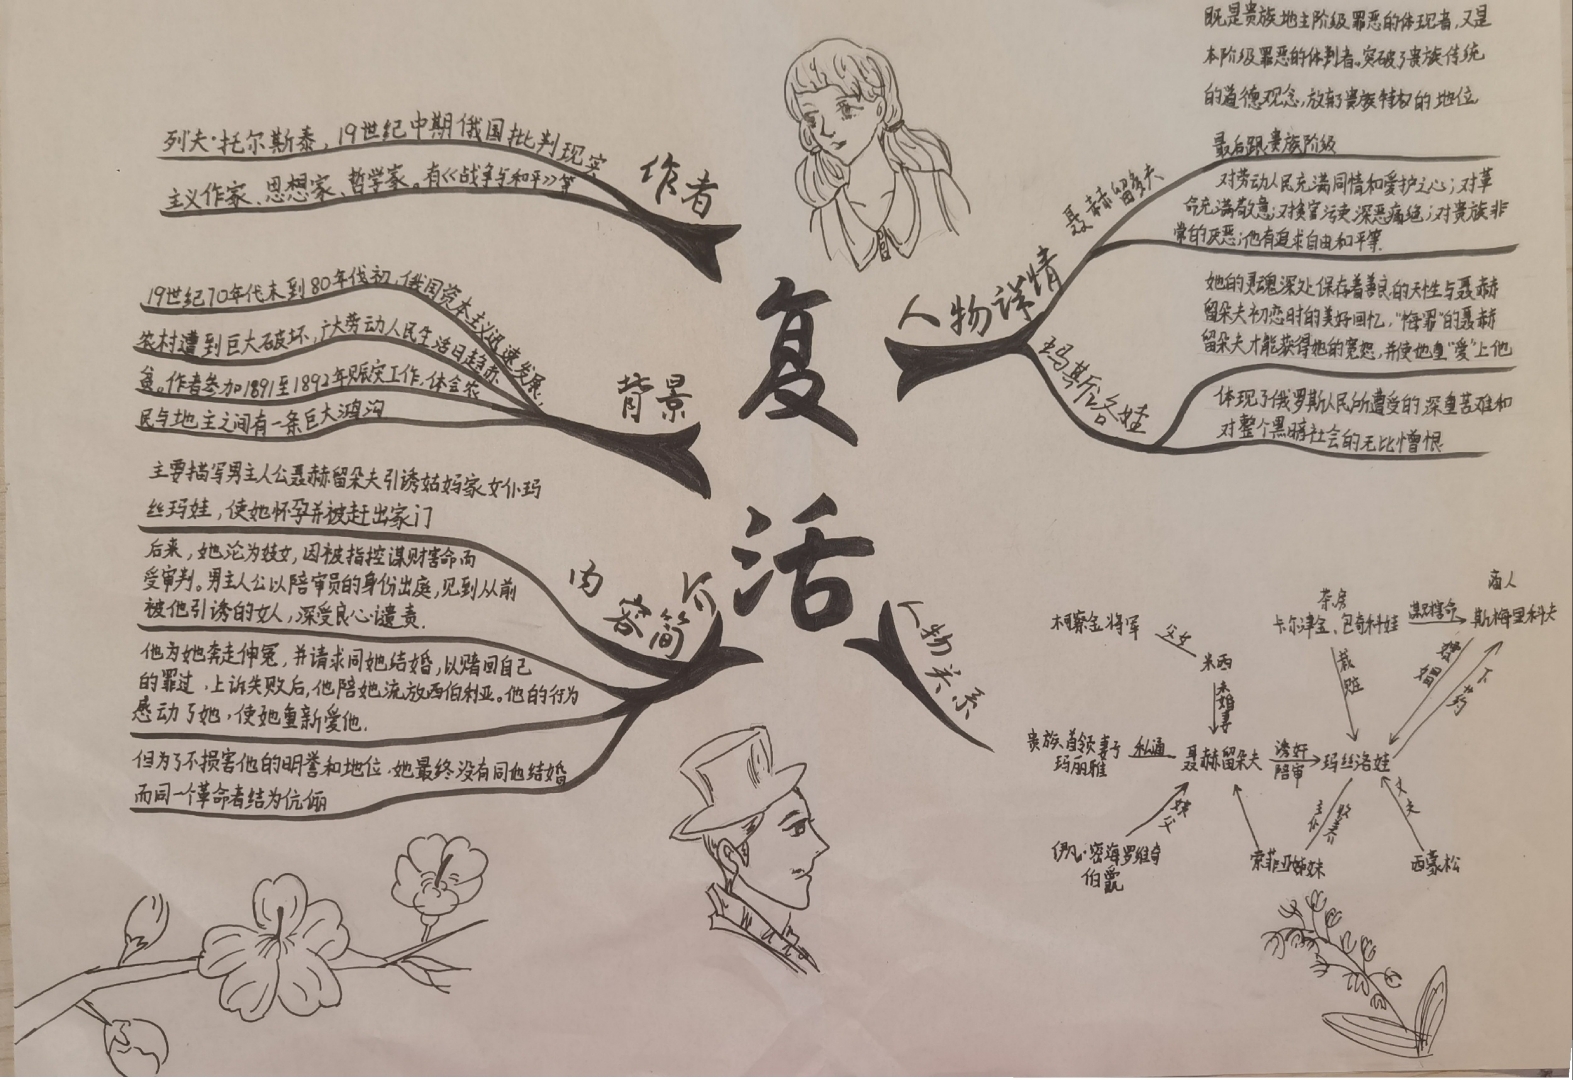 复活
作者
列夫·托尔斯泰，19世纪中期俄国批判现实
主义作家、思想家、哲学家。有《战争与和平》等
背景
19世纪70年代末到80年代初，俄国资本主义迅速发展，
农村遭到巨大破坏，广大劳动人民生活日趋赤
贫。作者参加1891至1892年赈灾工作，体会农
民与地主之间有一条巨大鸿沟
内容简介
主要描写男主人公聂赫留朵夫引诱姑妈家女仆玛
丝玛娃，使她怀孕并被赶出家门
后来，她沦为妓女，因被指控谋财害命而
受审判。男主人公以陪审员的身份出庭，见到从前
被他引诱的女人，深受良心谴责。
他为她奔走伸冤，并请求同她结婚，以赎回自己
的罪过，上诉失败后，他陪她流放西伯利亚。他的行为
感动了她，使她重新爱他.
但为了不损害他的明誉和地位，她最终没有同他结婚
而同一个革命者结为伉俪
人物详情
聂赫留朵夫
既是贵族地主阶级罪恶的体现者，又是
本阶级罪恶的体判者。突破了贵族传统
的道德观念，放弃了贵族特权的地位
最后跟贵族阶级
对劳动人民充满同情和爱护之心；对革
命充满敬意；对贪官污吏深恶痛绝；对贵族非
常的厌恶；他有追求自由和平等.
玛斯洛娃
她的灵魂深处保存着善良的天性与聂赫
留朵夫初恋时的美好回忆，“悔罪”的聂赫
留朵夫才能获得她的宽恕，并使她重“爱”上他
体现了俄罗斯人民所遭受的深重苦难和
对整个黑暗社会的无比憎恨
人物关系
商人
茶房
柯察金将军
父女
卡尔津金、包奇科娃
谋财害命
斯梅里科夫
米西
栽赃
嫖娼
下药
未婚妻
贵族首领妻子
玛丽雅
私通
聂赫留朵夫
诱奸
陪审
玛丝洛娃
主仆
收养
丈夫
伊凡·密海罗维奇
伯爵
索菲亚姊妹
西蒙松